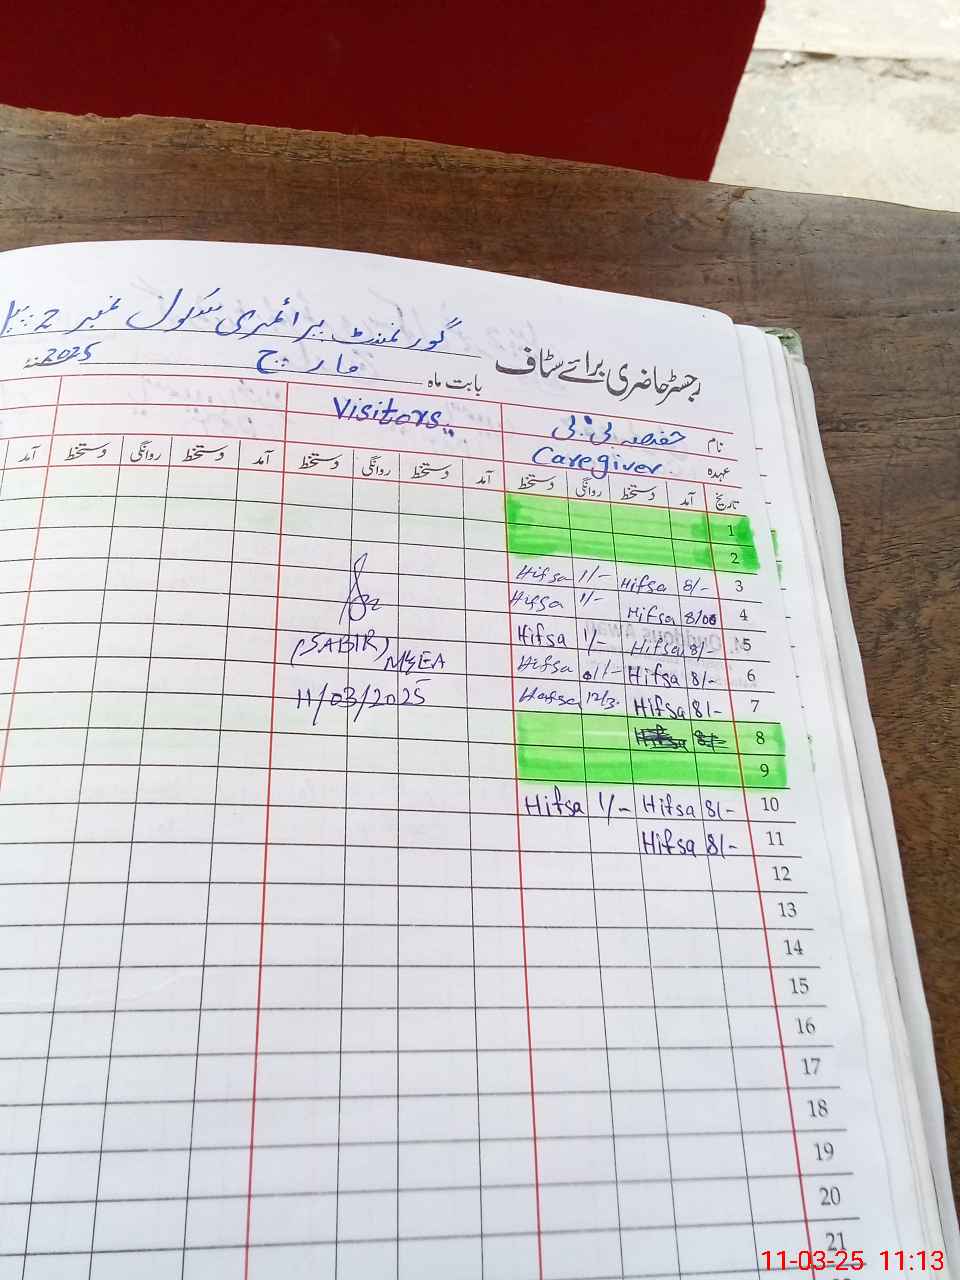 گورنمنٹ پرائمری سکول نمبر 2
رجسٹر حاضری برائے سٹاف
بابت ماہ مارچ 2025
نام حفصہ بی بی Visitors
عہدہ Caregiver
تاریخ آمد دستخط روانگی دستخط آمد دستخط روانگی دستخط آمد دستخط روانگی دستخط آمد
1
2
3 8/- Hifsa 1/- Hifsa
4 8/00 Hifsa 1/- Hifsa
5 8/- Hifsa 1/- Hifsa
6 8/- Hifsa 1/- Hifsa
7 8/- Hifsa 12/3 Hifsa
8
9
10 8/- Hifsa 1/- Hifsa
11 8/- Hifsa
12
13
14
15
16
17
18
19
20
21
(SABIR) MEA
11/03/2025
11-03-25 11:13